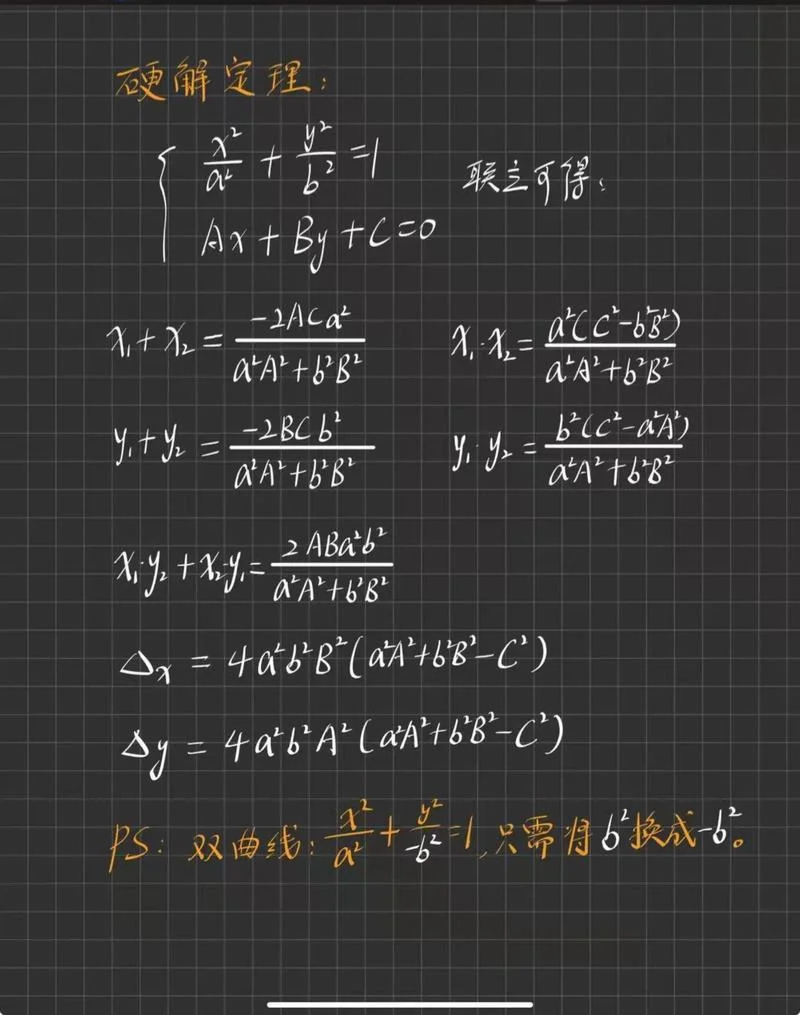 硬解定理:
x²/a² + y²/b² = 1
联立可得:
Ax + By + C = 0
x₁ + x₂ = -2ACa² / a²A² + b²B²    x₁·x₂ = a²(C² - b²B²) / a²A² + b²B²
y₁ + y₂ = -2BCb² / a²A² + b²B²    y₁·y₂ = b²(C² - a²A²) / a²A² + b²B²
x₁·y₂ + x₂·y₁ = 2ABa²b² / a²A² + b²B²
Δx = 4a²b²B²(a²A² + b²B² - C²)
Δy = 4a²b²A²(a²A² + b²B² - C²)
PS: 双曲线: x²/a² + y²/-b² = 1, 只需将 b² 换成 -b²。